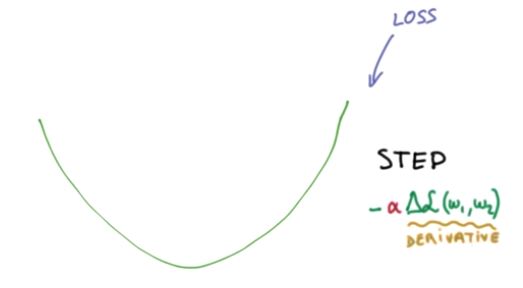 LOSS
STEP
-α Δℒ(ω₁,ω₂)
DERIVATIVE